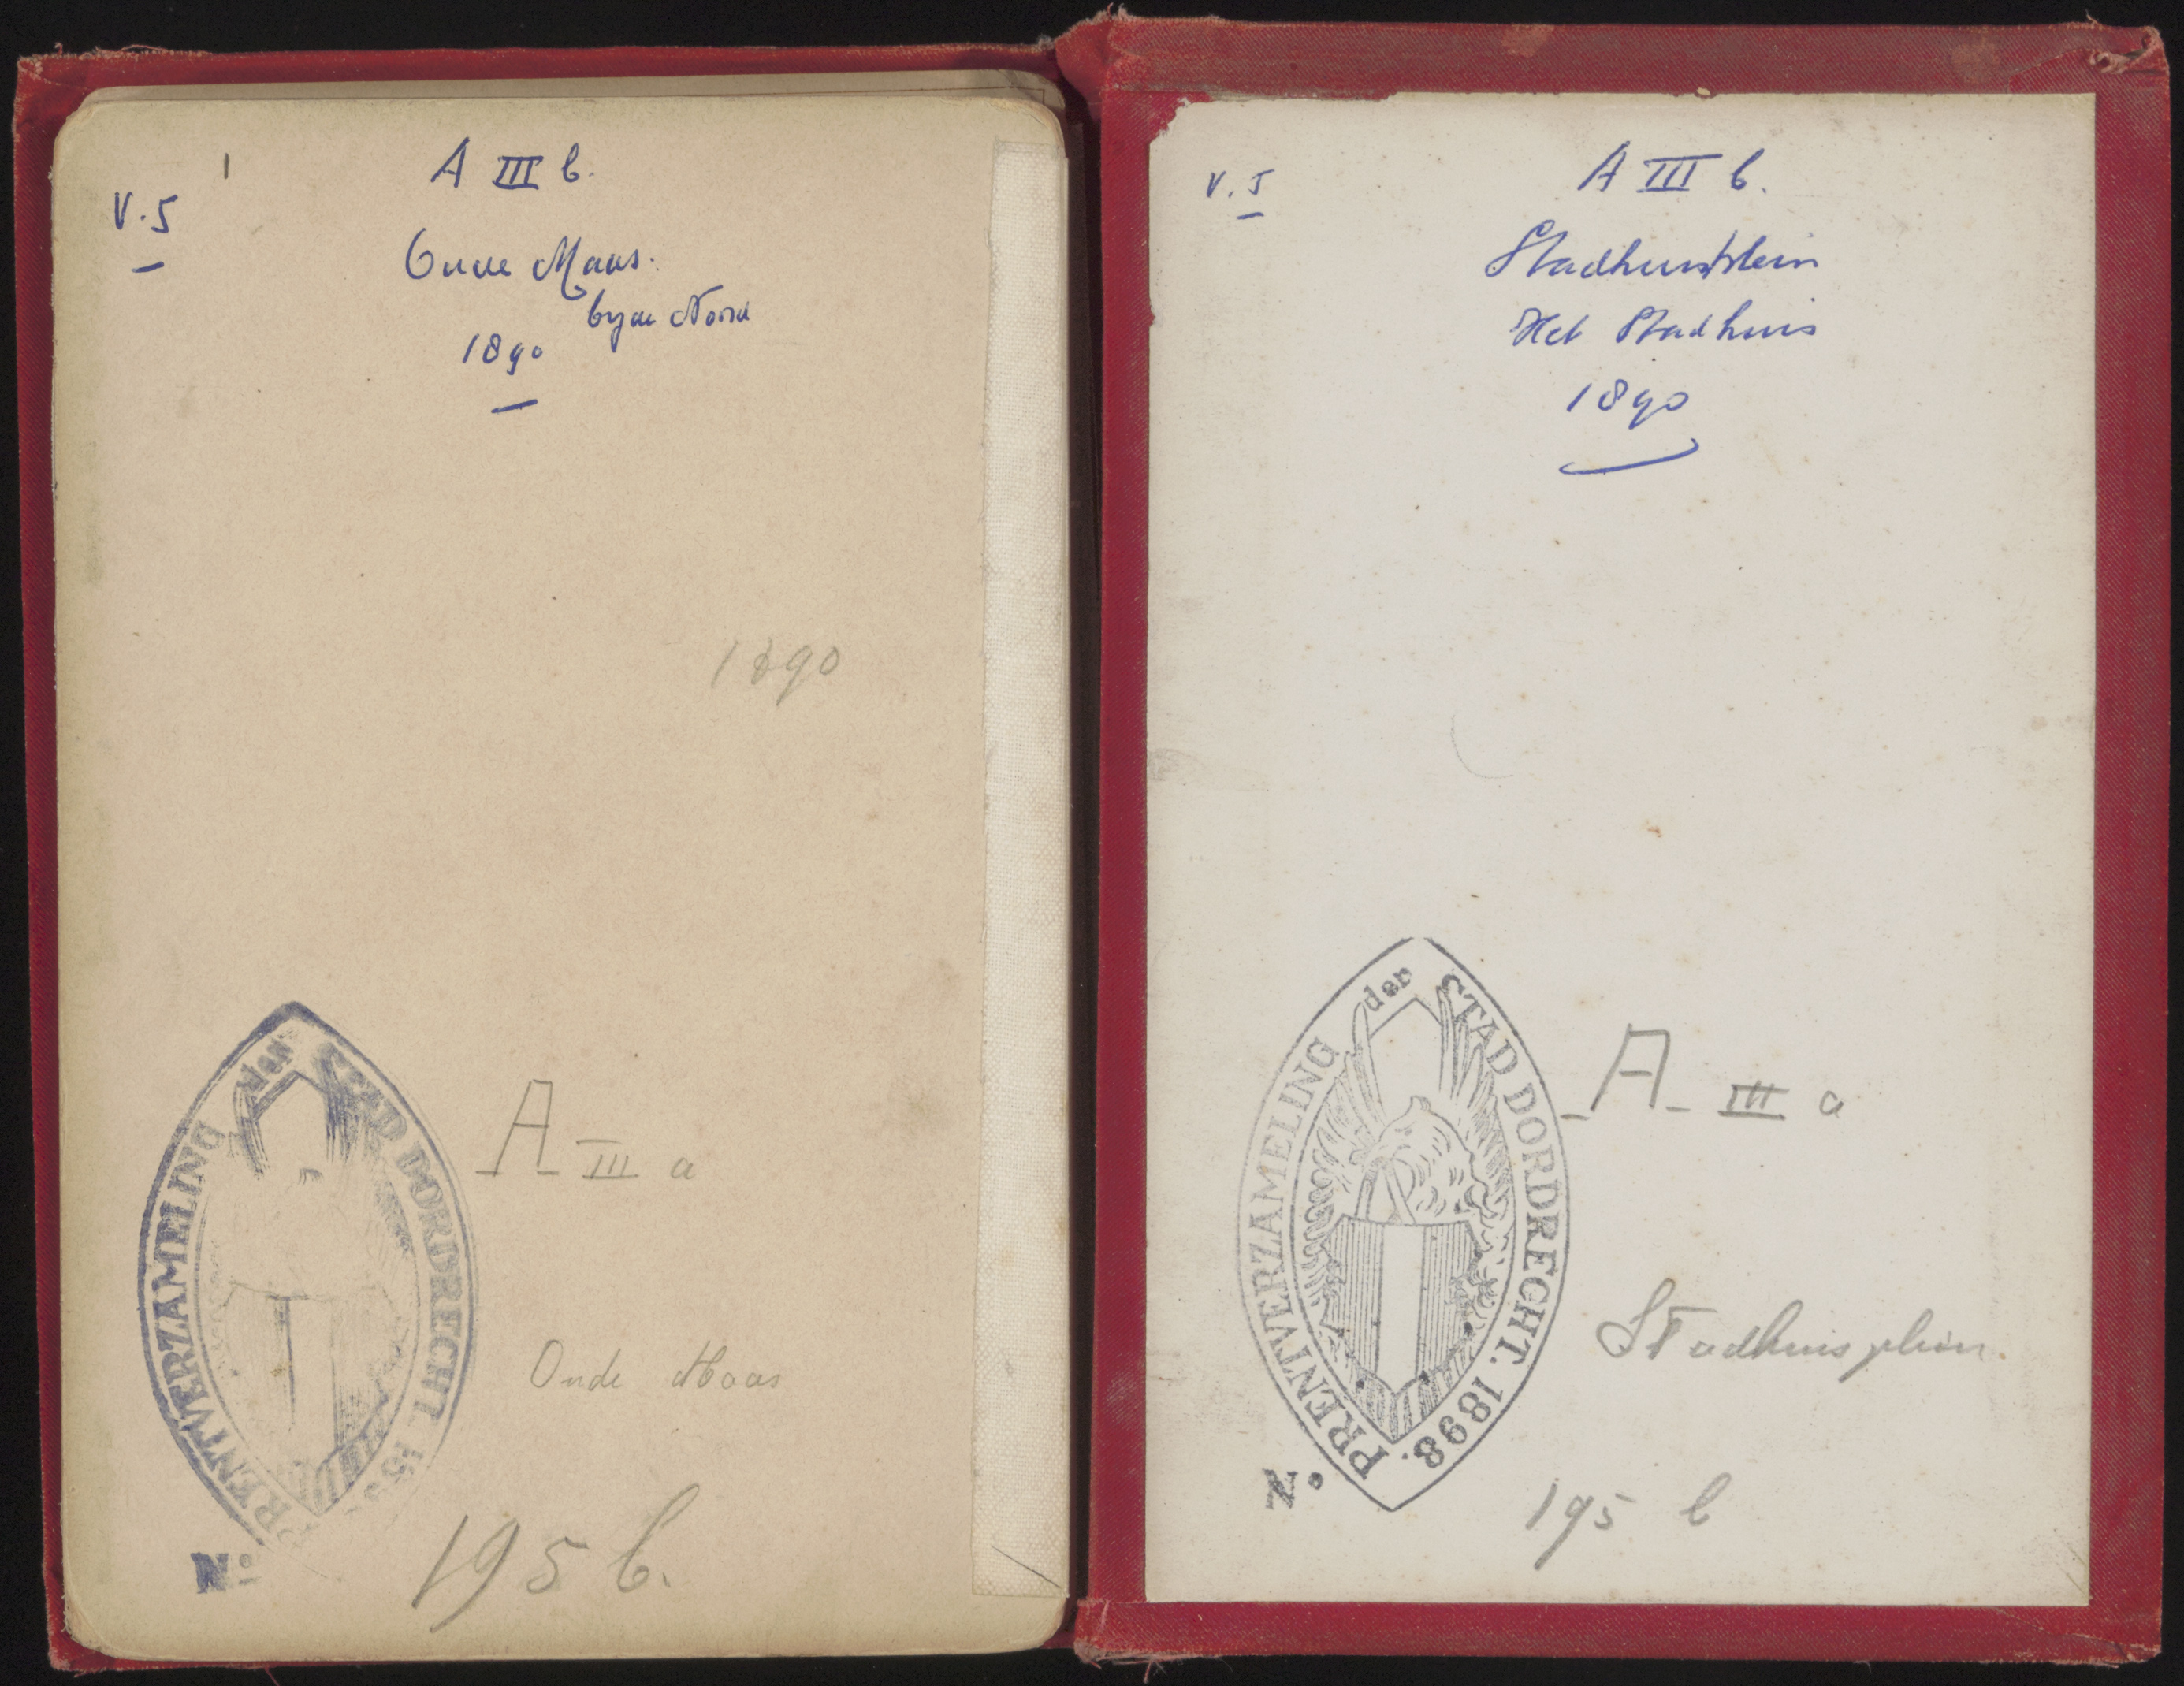 A III b.
V. 5
Oude Maas.
by de Noord
1890
1890
PRENTVERZAMELING der STAD DORDRECHT. 1898.
A III a
Oude Maas
195 b.
No
A III b.
V. 5
Stadhuisplein
Het Stadhuis
1890
PRENTVERZAMELING der STAD DORDRECHT. 1898.
A III a
Stadhuisplein.
195 b
No